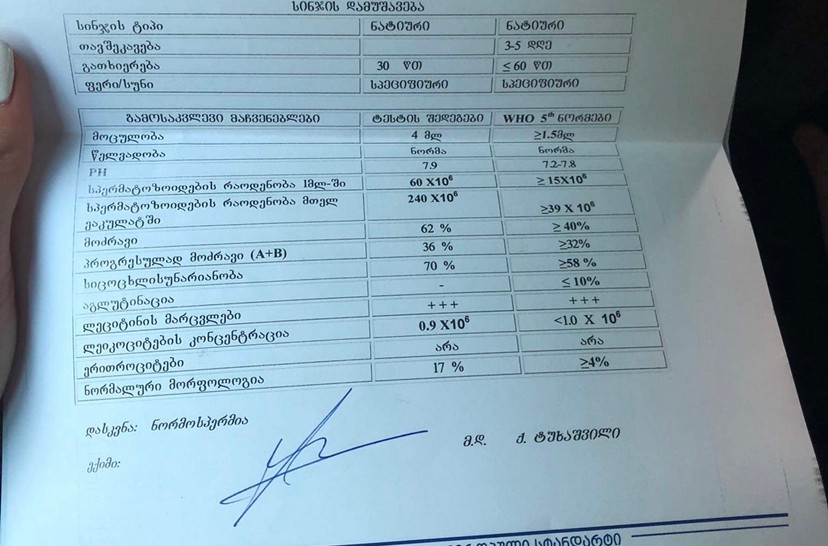 სინჯის დამუშავება
სინჯის ტიპი ნატიური ნატიური
თავშეკავება 3-5 დღე
გათხიერება 30 წთ ≤ 60 წთ
ფერი/სუნი სპეციფიური სპეციფიური
გამოსაკვლევი მაჩვენებლები ტესტის შედეგები WHO 5th ნორმები
მოცულობა 4 მლ ≥1.5მლ
წელვადობა ნორმა ნორმა
PH 7.9 7.2-7.8
სპერმატოზოიდების რაოდენობა 1მლ-ში 60 X10⁶ ≥ 15X10⁶
სპერმატოზოიდების რაოდენობა მთელ ეაკულატში 240 X10⁶ ≥39 X 10⁶
მოძრავი 62 % ≥ 40%
პროგრესულად მოძრავი (A+B) 36 % ≥32%
სიცოცხლისუნარიანობა 70 % ≥58 %
აგლუტინაცია - ≤ 10%
ლეციტინის მარცვლები +++ +++
ლეიკოციტების კონცენტრაცია 0.9 X10⁶ <1.0 X 10⁶
ერითროციტები არა არა
ნორმალური მორფოლოგია 17 % ≥4%
დასკვნა: ნორმოსპერმია
ექიმი: მ.დ. ქ. ტუხაშვილი
სტანდარტი